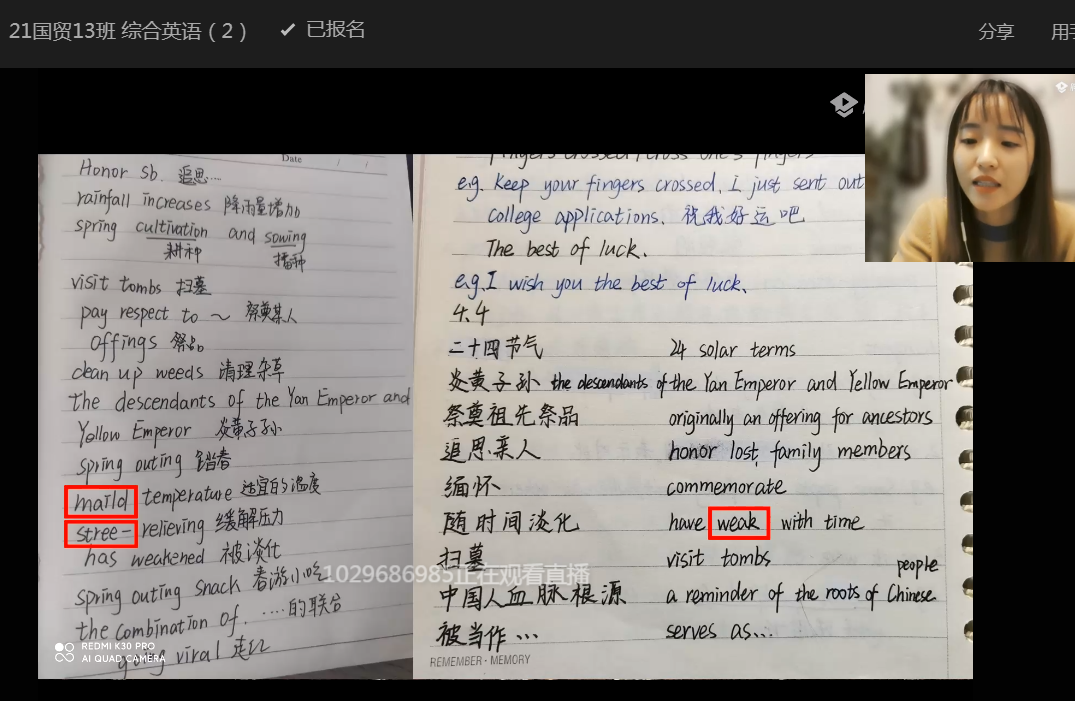 21国贸13班 综合英语（2）
✓ 已报名
分享
Date
Honor sb. 追思....
rainfall increases 降雨量增加
spring cultivation and sowing
耕种
播种
visit tombs 扫墓
pay respect to ~ 祭奠某人
offings 祭品
clean up weeds 清理杂草
the descendants of the Yan Emperor and
Yellow Emperor 炎黄子孙
spring outing 踏春
maild temperature 适宜的温度
stree-relieving 缓解压力
has weakened 被淡化
spring outing snack 春游小吃
the combination of. ....的联合
going viral 走红
REDMI K30 PRO
AI QUAD CAMERA
e.g. Keep your fingers crossed, I just sent out
college applications. 祝我好运吧
The best of luck.
e.g. I wish you the best of luck.
4.4
二十四节气 24 solar terms
炎黄子孙 the descendants of the Yan Emperor and Yellow Emperor
祭奠祖先祭品 originally an offering for ancestors
追思亲人 honor lost family members
缅怀 commemorate
随时间淡化 have weak with time
扫墓 visit tombs
中国人血脉根源 a reminder of the roots of Chinese people
被当作... serves as...
REMEMBER · MEMORY
1029686985正在观看直播